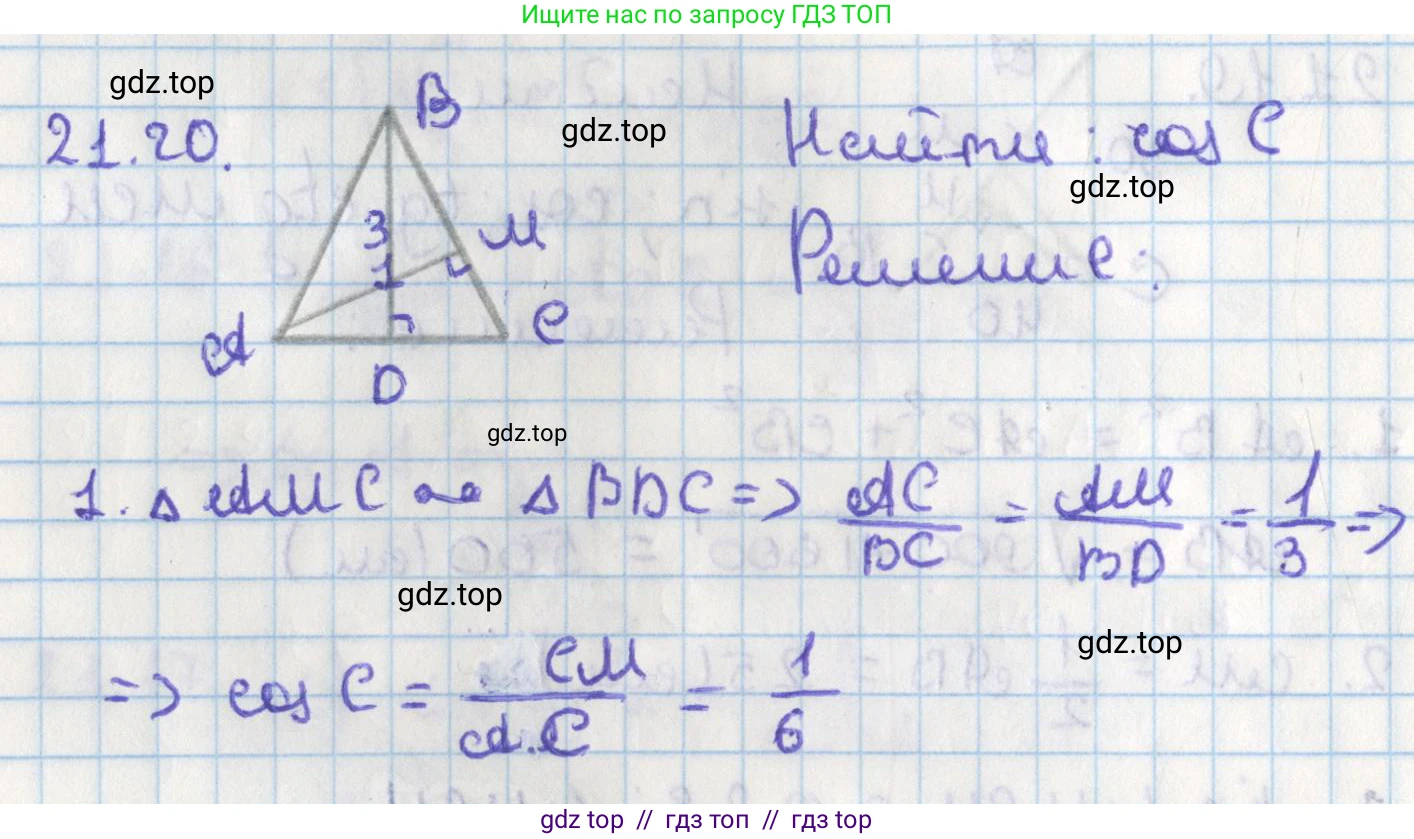 Ищите нас по запросу ГДЗ ТОП
gdz.top
21.20.
B
gdz.top
Найти: cos C
gdz.top
3
M
1
Решение:
A
C
D
gdz.top
1. △ AMC ∾ △ BDC => AC/BC = AM/BD = 1/3 =>
gdz.top
gdz.top
=> cos C = CM/AC = 1/6
gdz top // гдз топ // гдз top